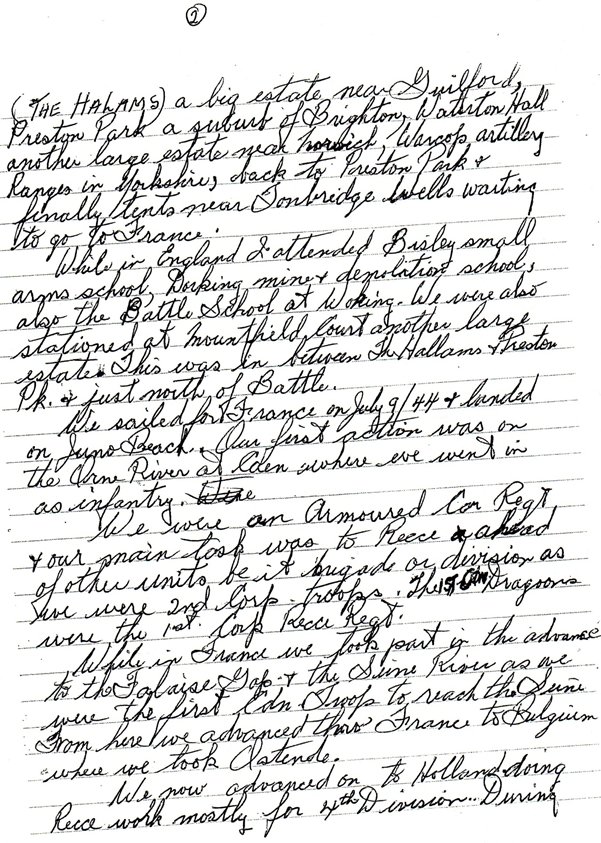 2
(THE HALAMS) a big estate near Guilford,
Preston Park a suburb of Brighton, Waterton Hall
another large estate near Norwich, Warcop artillery
Ranges in Yorkshire, back to Preston Park &
finally tents near Tonbridge Wells waiting
to go to France.
While in England I attended Bisley small
arms school, Dorking mine & demolition school,
also the Battle School at Woking. We were also
stationed at Mountfield Court another large
estate. This was in between The Hallams & Preston
Pk. & just north of Battle.
We sailed for France on July 9/44 & landed
on Juno Beach. Our first action was on
the Orne River at Caen where we went in
as infantry.
We were an Armoured Car Regt
& our main task was to Recce ahead
of other units be it brigade or division as
we were 2nd Corp. troops. The Dragoons
were the 1st. Corp Recce Regt.
While in France we took part in the advance
to the Falaise Gap & the Seine River as we
were the first Cdn Troop to reach the Seine
From here we advanced thro France to Belgium
where we took Ostende.
We now advanced on to Holland doing
Recce work mostly for 4th Division. During